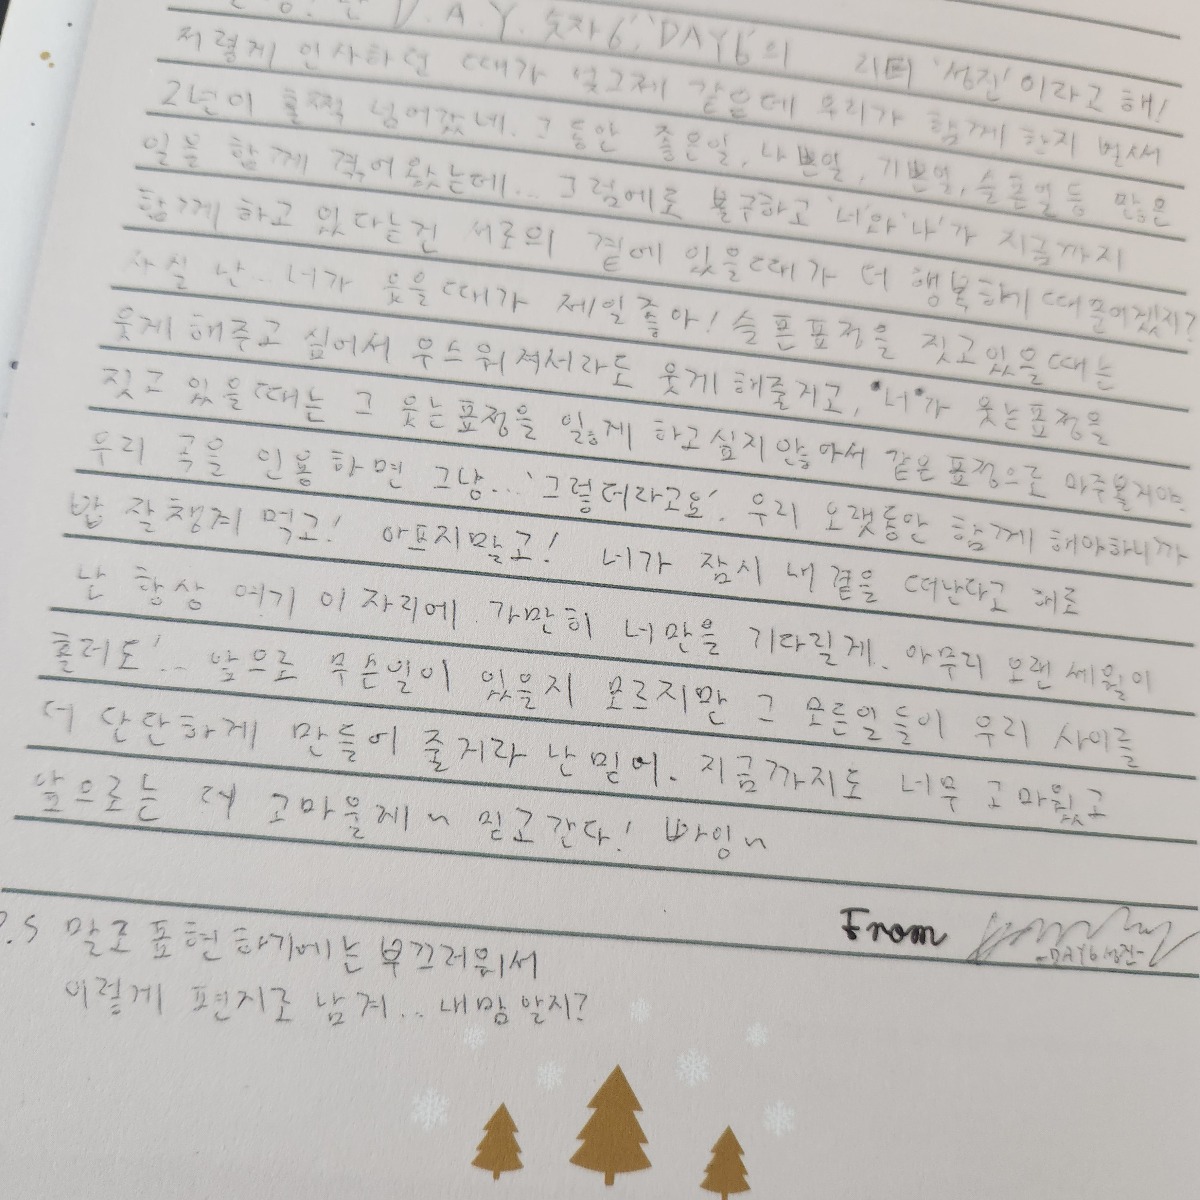 난 D.A.Y. 숫자6, 'DAY6'의 리더 '성진'이라고 해!
저렇게 인사하던 때가 엊그제 같은데 우리가 함께 한지 벌써
2년이 훌쩍 넘어갔네. 그 동안 좋은일, 나쁜일, 기쁜일, 슬픈일 등 많은
일을 함께 겪어 왔는데... 그럼에로 불구하고 '너'와 '나'가 지금까지
함께 하고 있다는건 서로의 곁에 있을때가 더 행복하기 때문이겠지?
사실 난.. 너가 웃을때가 제일좋아! 슬픈표정을 짓고있을때는
웃게 해주고 싶어서 우스워져서라도 웃게 해줄지고, "너"가 웃는표정을
짓고 있을때는 그 웃는표정을 잃게 하고싶지않아서 같은표정으로 마주볼거야.
우리 곡을 인용하면 그냥... '그렇더라고요'. 우리 오랫동안 함께 해야하니까
밥 잘챙겨 먹고! 아프지말고! 너가 잠시 내 곁을 떠난다고 해도
난 항상 여기 이 자리에 가만히 너만을 기다릴게. 아무리 오랜 세월이
흘러도!.. 앞으로 무슨일이 있을지 모르지만 그 모든일들이 우리 사이를
더 단단하게 만들어 줄거라 난 믿어. 지금까지도 너무 고마웠고
앞으로는 더 고마울게~ 믿고간다! 빠잉~
From
-DAY6 성진-
P.S 말로 표현하기에는 부끄러워서
이렇게 편지로 남겨.. 내맘 알지?